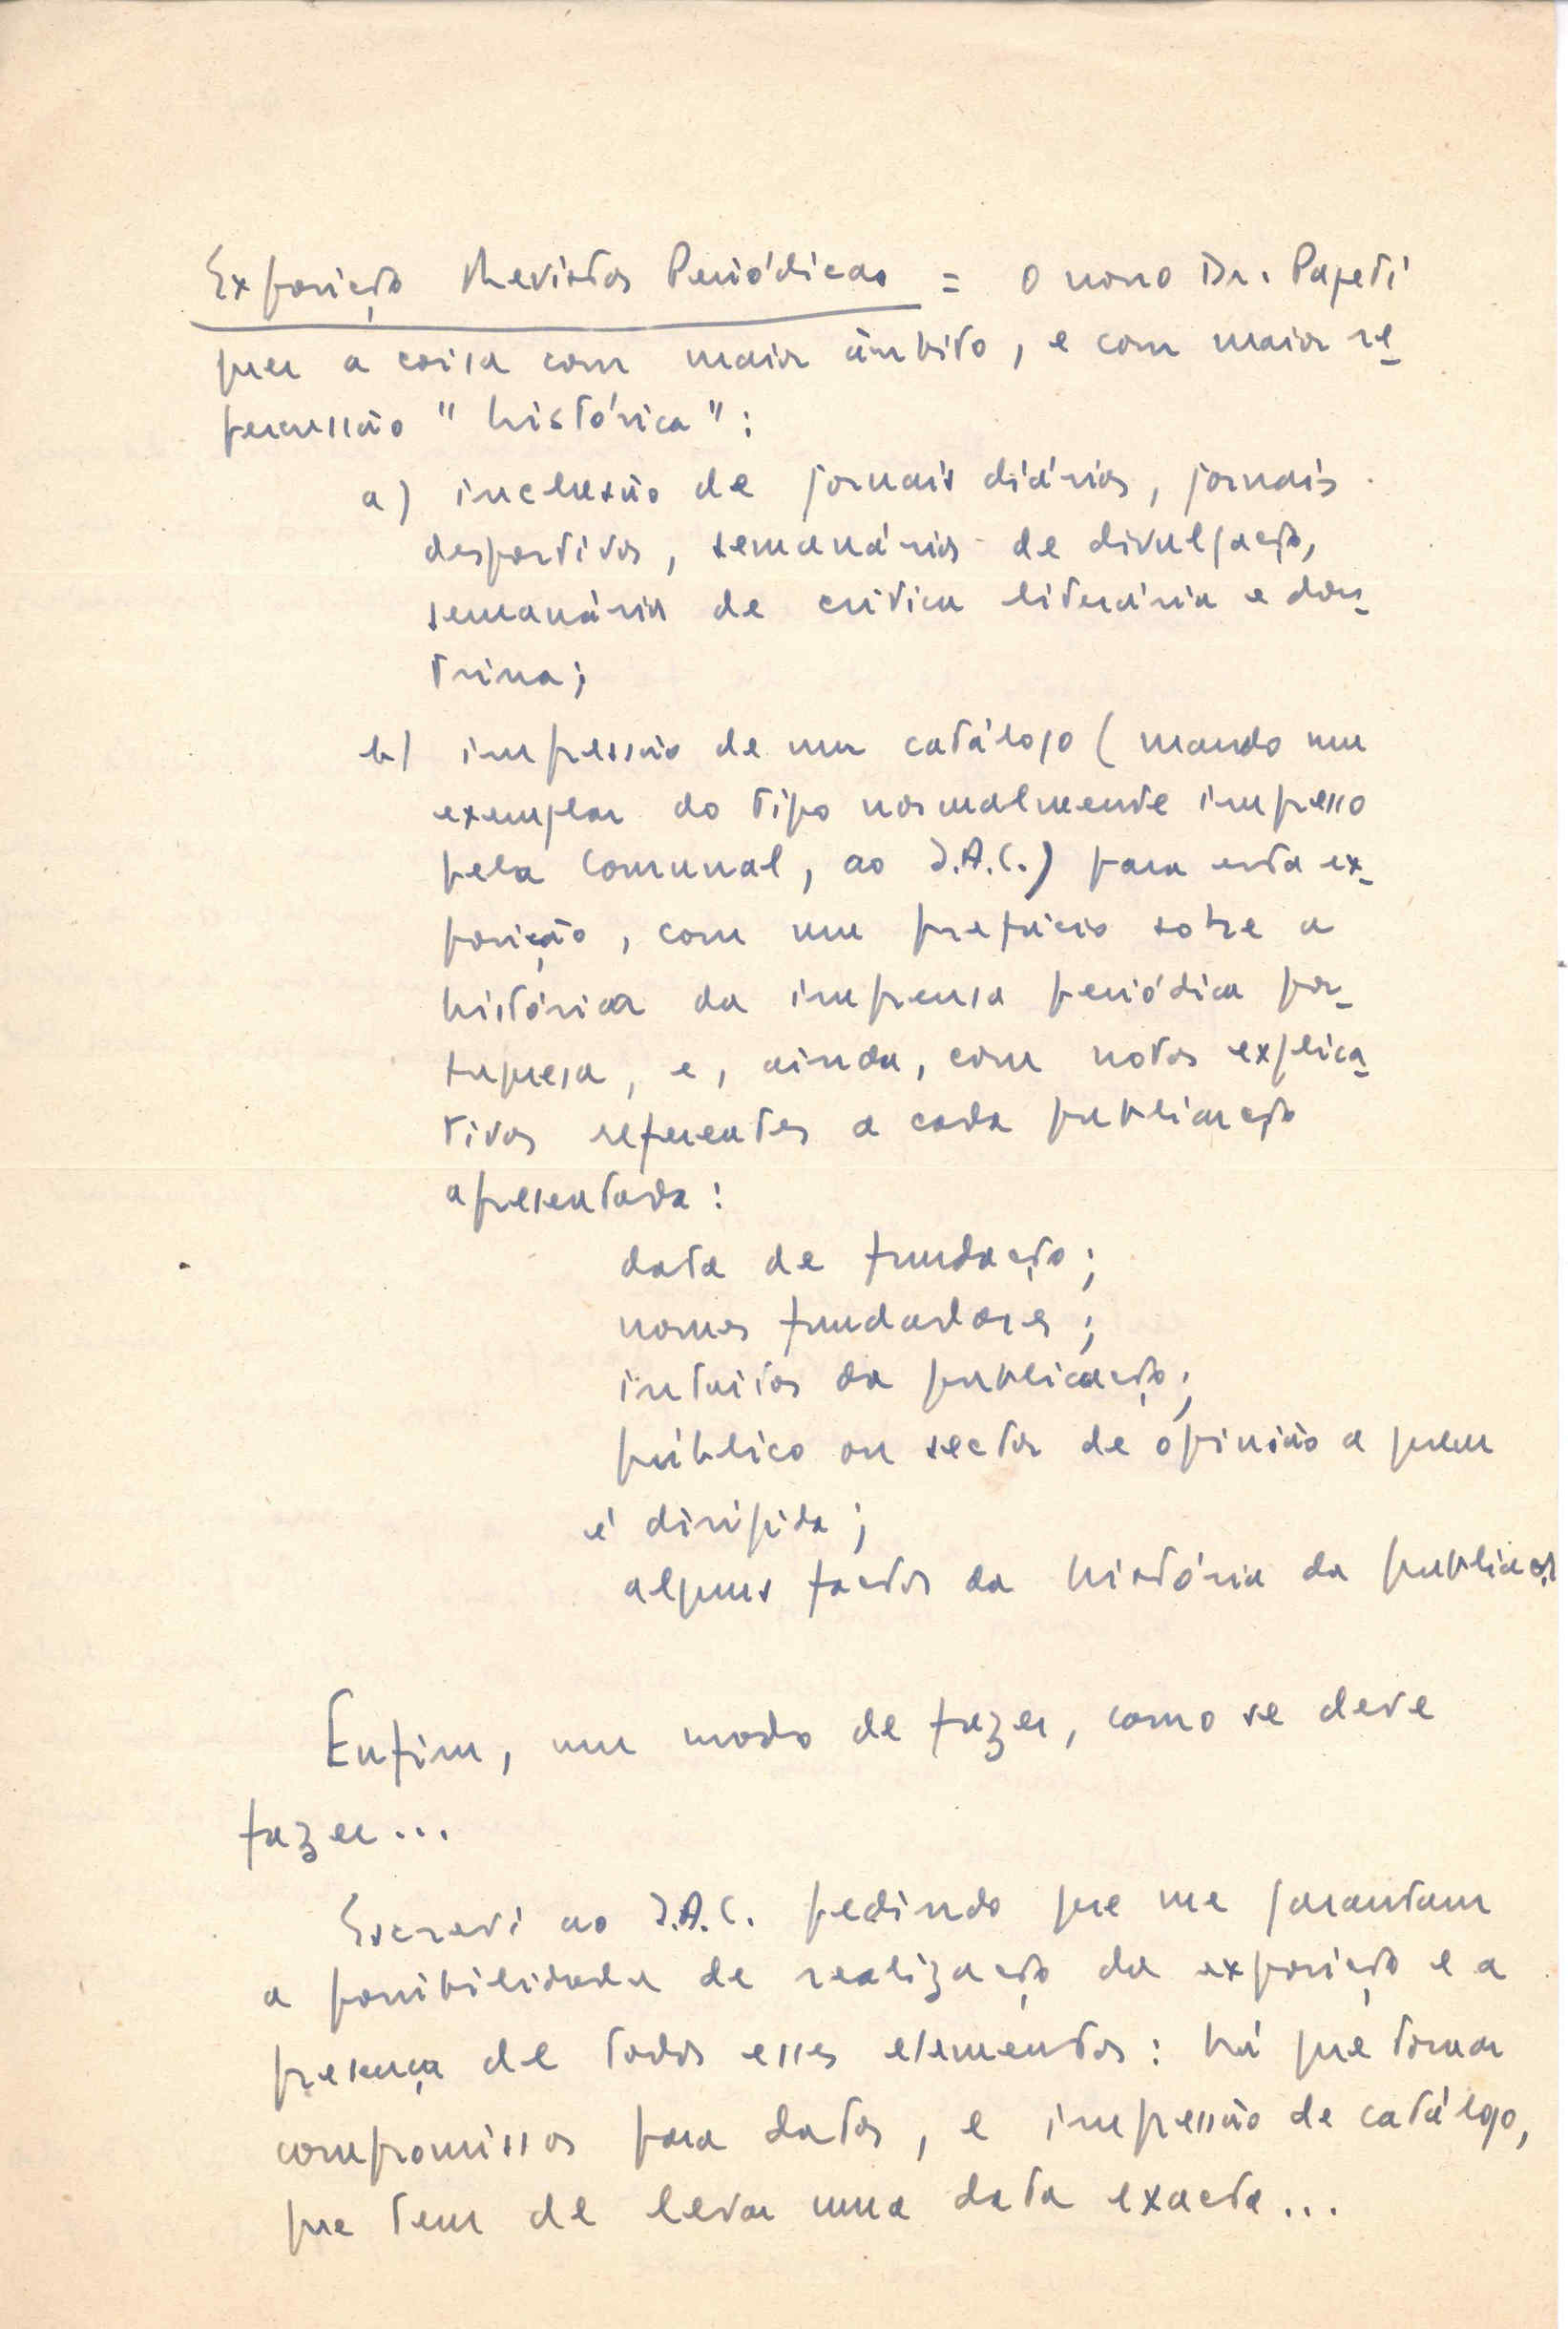 Exposição Revistas Periódicas = O nosso Dr. Papeti
quer a coisa com maior âmbito, e com maior re-
percussão "histórica":
a) inclusão de jornais diários, jornais
desportivos, semanários de divulgação,
semanários de crítica literária e dou-
trina;
b) impressão de um catálogo (mando um
exemplar do tipo normalmente impresso
pela Comunal, ao I.A.C.) para esta ex-
posição, com um prefácio sobre a
história da imprensa periódica por-
tuguesa, e, ainda, com notas explica-
tivas referentes a cada publicação
apresentada:
data de fundação;
nomes fundadores;
intuitos da publicação;
público ou sector de opinião a quem
é dirigida;
alguns factos da história da publicação
Enfim, um modo de fazer, como se deve
fazer...
Escrevi ao I.A.C. pedindo que me garantam
a possibilidade de realização da exposição e a
presença de todos esses elementos: há que tomar
compromissos para datas, e impressão de catálogo,
que tem de levar uma data exacta...